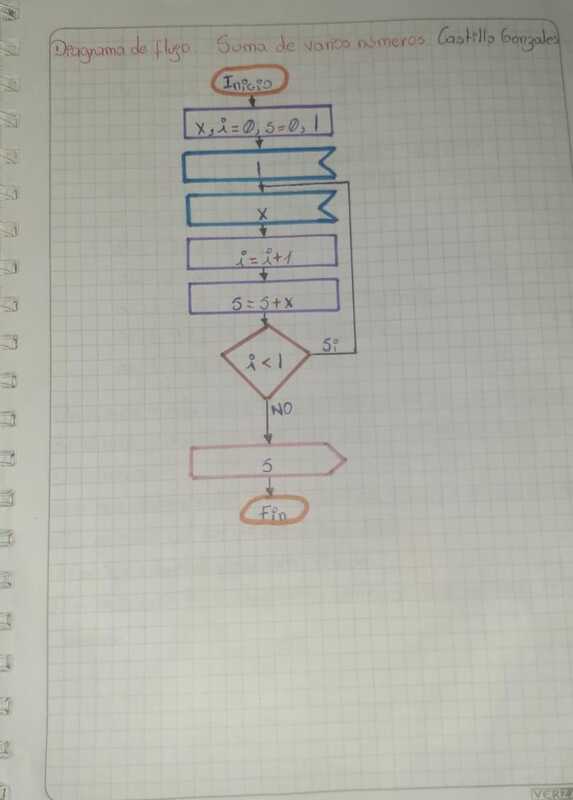 Diagrama de flujo. Suma de varios números Castillo Gonzales
Inicio
x, i=0, s=0, l
l
x
i=i+1
s=s+x
i<l
Si
NO
s
Fin